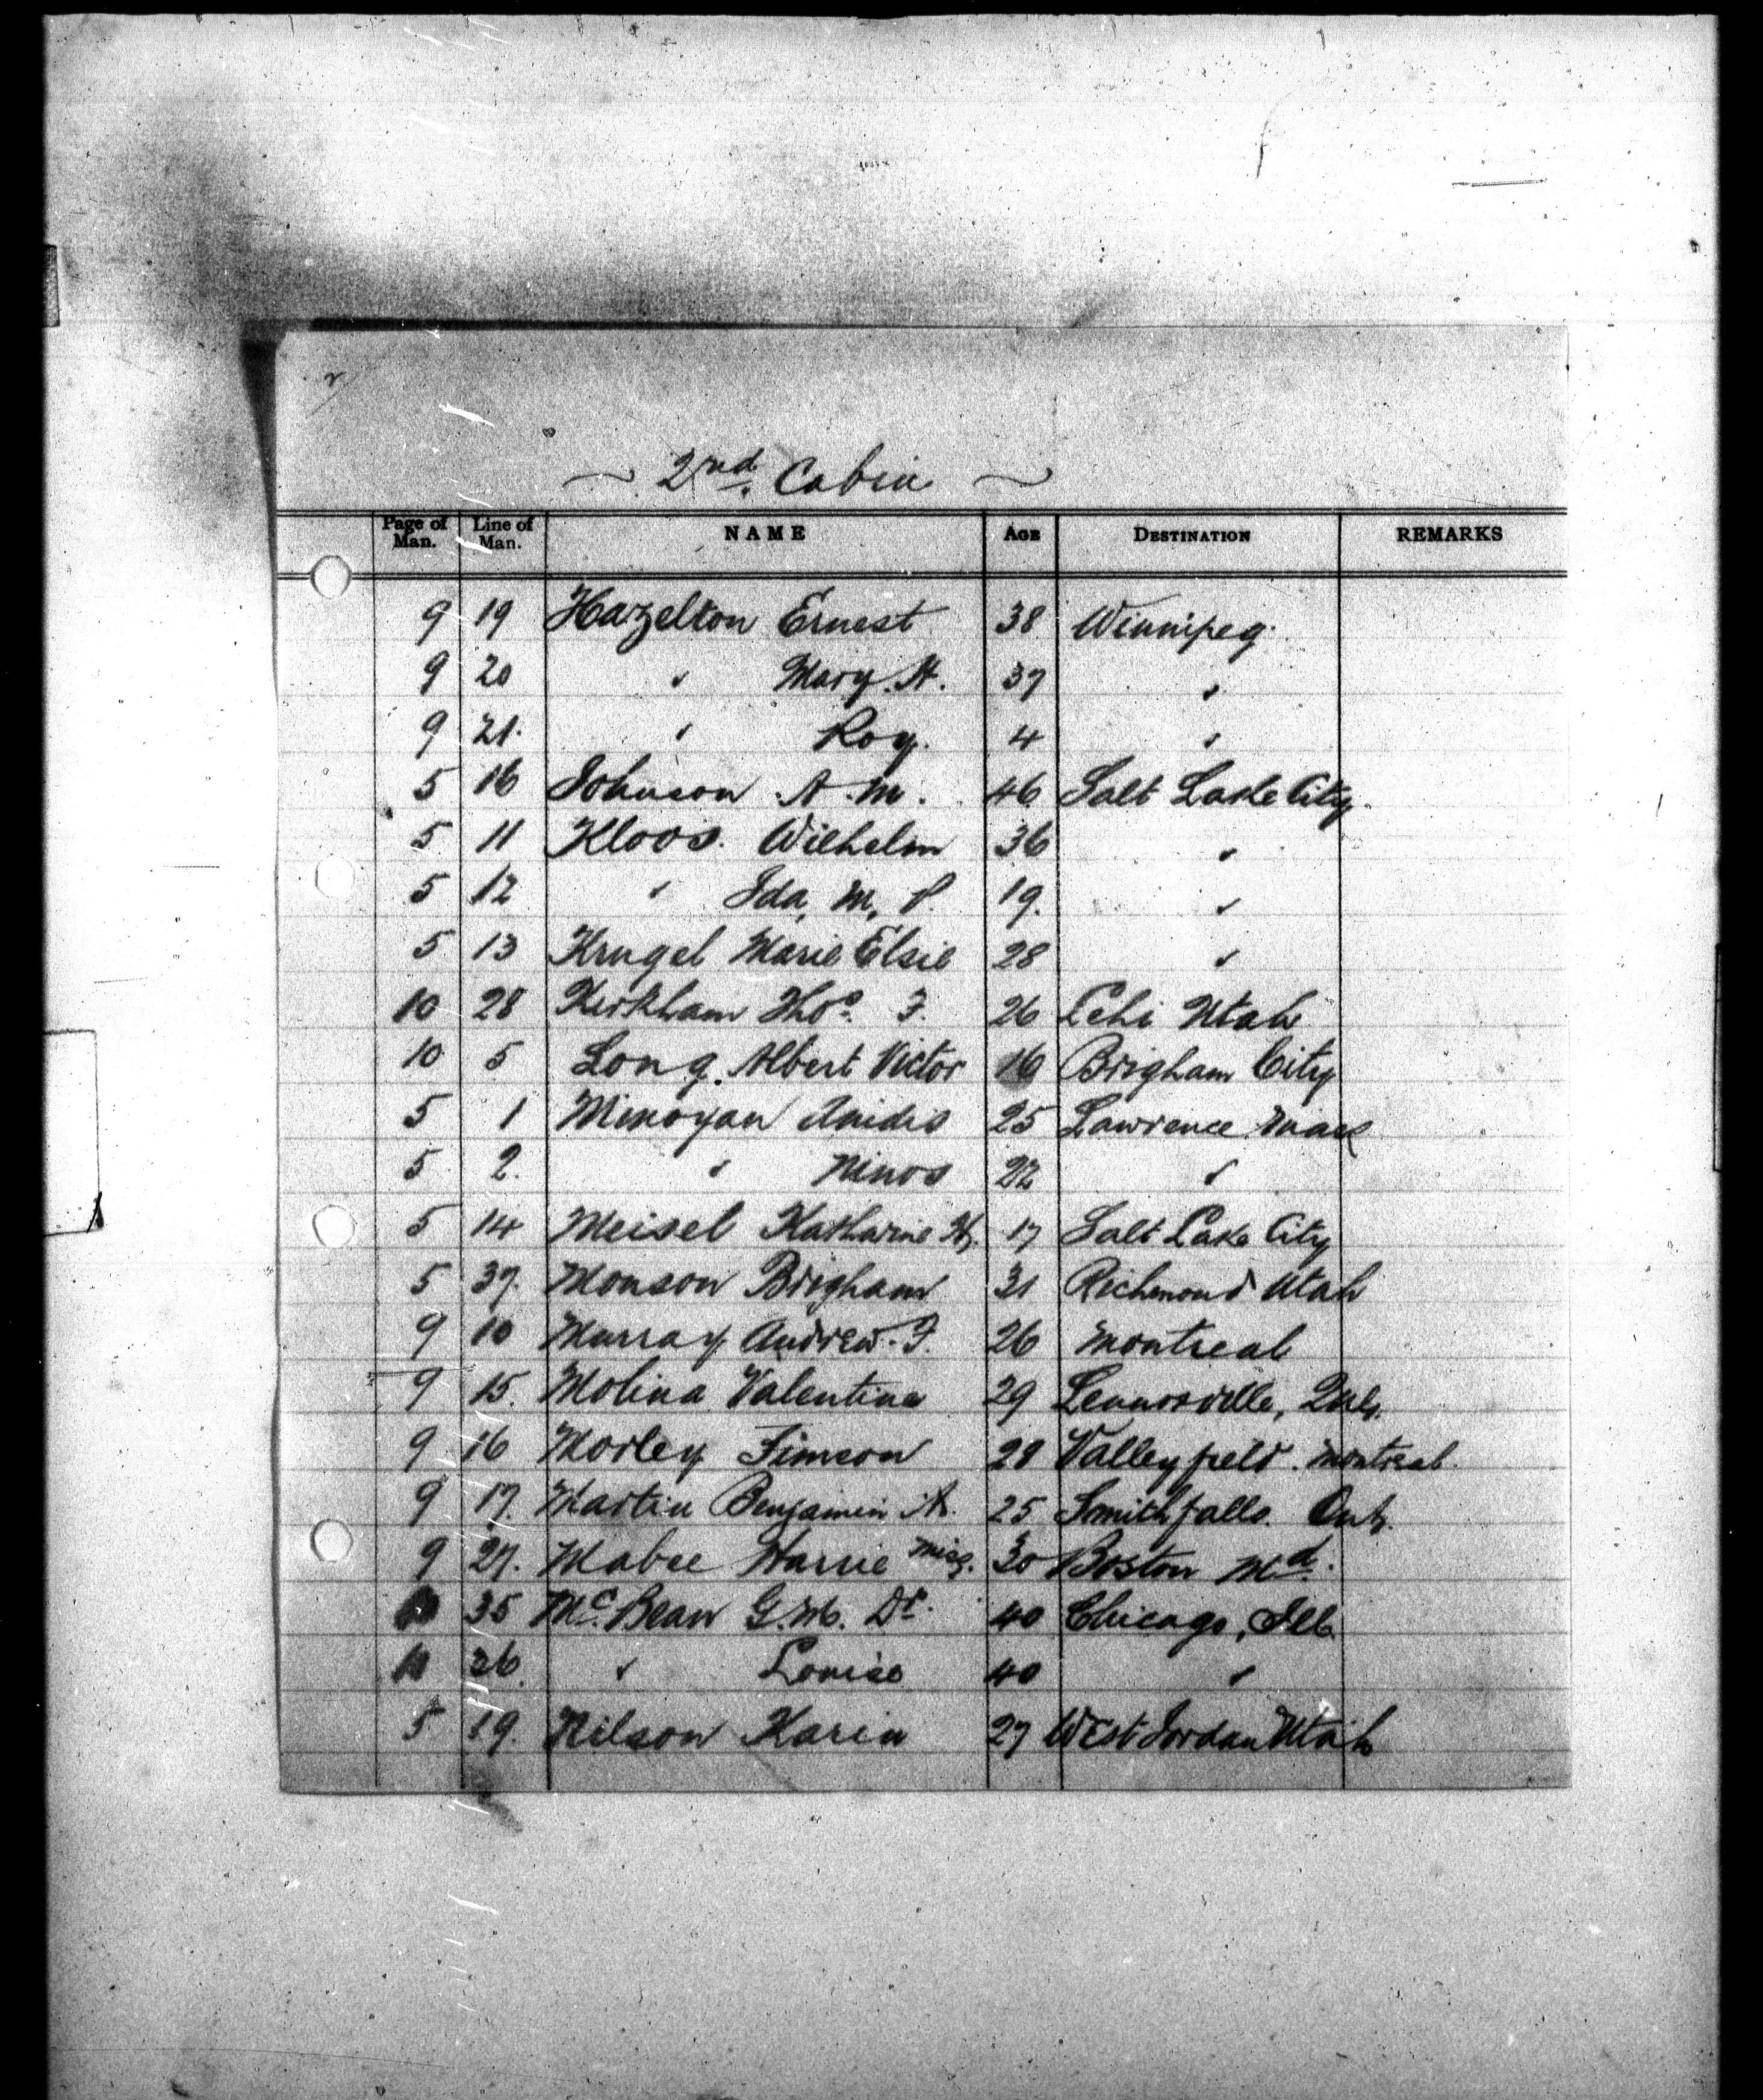 ~ 2nd. Cabin ~
Page of Man. Line of Man. NAME AGE DESTINATION REMARKS
9 19 Hazelton Ernest 38 Winnipeg.
9 20 " Mary. H. 37 "
9 21. " Roy. 4 "
5 16 Johnson A. M. 46 Salt Lake City.
5 11 Kloos. Wilhelm 36 "
5 12 " Ida, M, P. 19. "
5 13 Krugel Marie Elsie 28 "
10 28 Kirkham Thos. F. 26 Lehi Utah
10 5 Long. Albert Victor 16 Brigham City
5 1 Minoyan 25 Lawrence Mass
5 2. " Ninos 22 "
5 14 Meisel Katharine H. 17 Salt Lake City
5 37. Monson Brigham 31 Richmond Utah
9 10 Murray Andrew. F. 26 Montreal
9 15. Molina Valentine 29 Lennoxville, Que.
9 16 Morley Simson 28 Valleyfield. Montreal.
9 17. Martin Benjamin A. 25 Smithfalls. Ont.
9 27. Mabee Harrie Miss. 30 Boston Md.
10 35 Mc. Bean G. M. Dr. 40 Chicago, Ill.
10 36. " Louise 40 "
5 19. Nilson Karin 27 West Jordan Utah